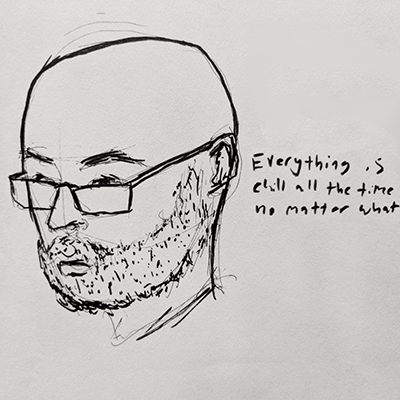 Everything is
chill all the time
no matter what